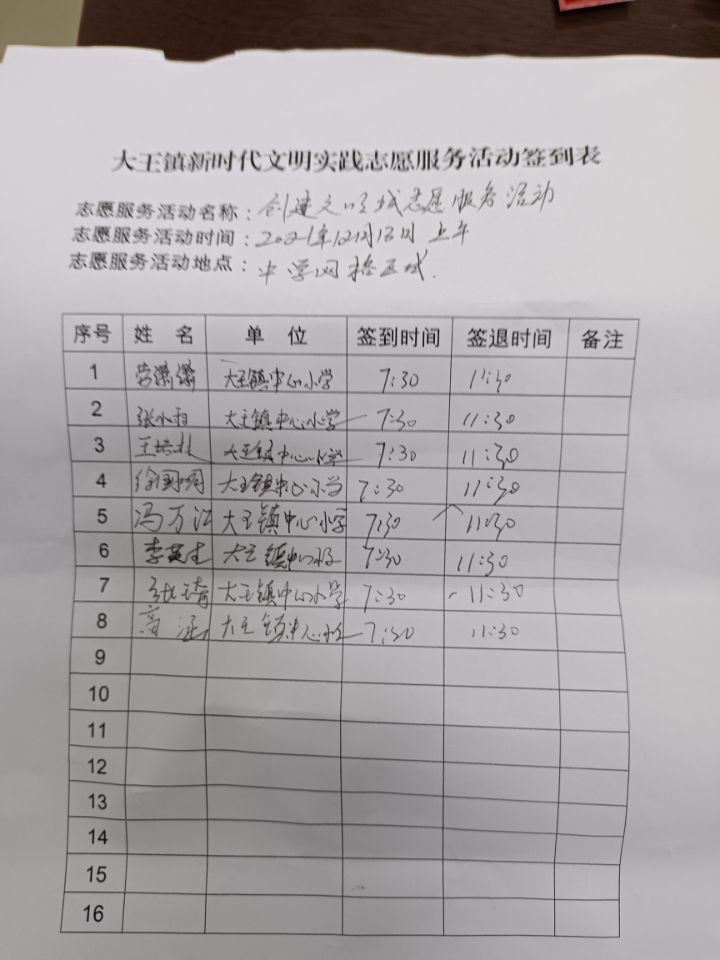 大王镇新时代文明实践志愿服务活动签到表
志愿服务活动名称：创建文明城志愿服务活动
志愿服务活动时间：2021年12月18日 上午
志愿服务活动地点：中学网格区域.
序号 姓名 单位 签到时间 签退时间 备注
1 大王镇中心小学 7:30 11:30
2 大王镇中心小学 7:30 11:30
3 王培 大王镇中心小学 7:30 11:30
4 徐国明 大王镇中心小学 7:30 11:30
5 冯万江 大王镇中心小学 7:30 11:30
6 李英 大王镇中心 7:30 11:30
7 张琦 大王镇中心小学 7:30 11:30
8 高涵 大王镇中心 7:30 11:30
9
10
11
12
13
14
15
16